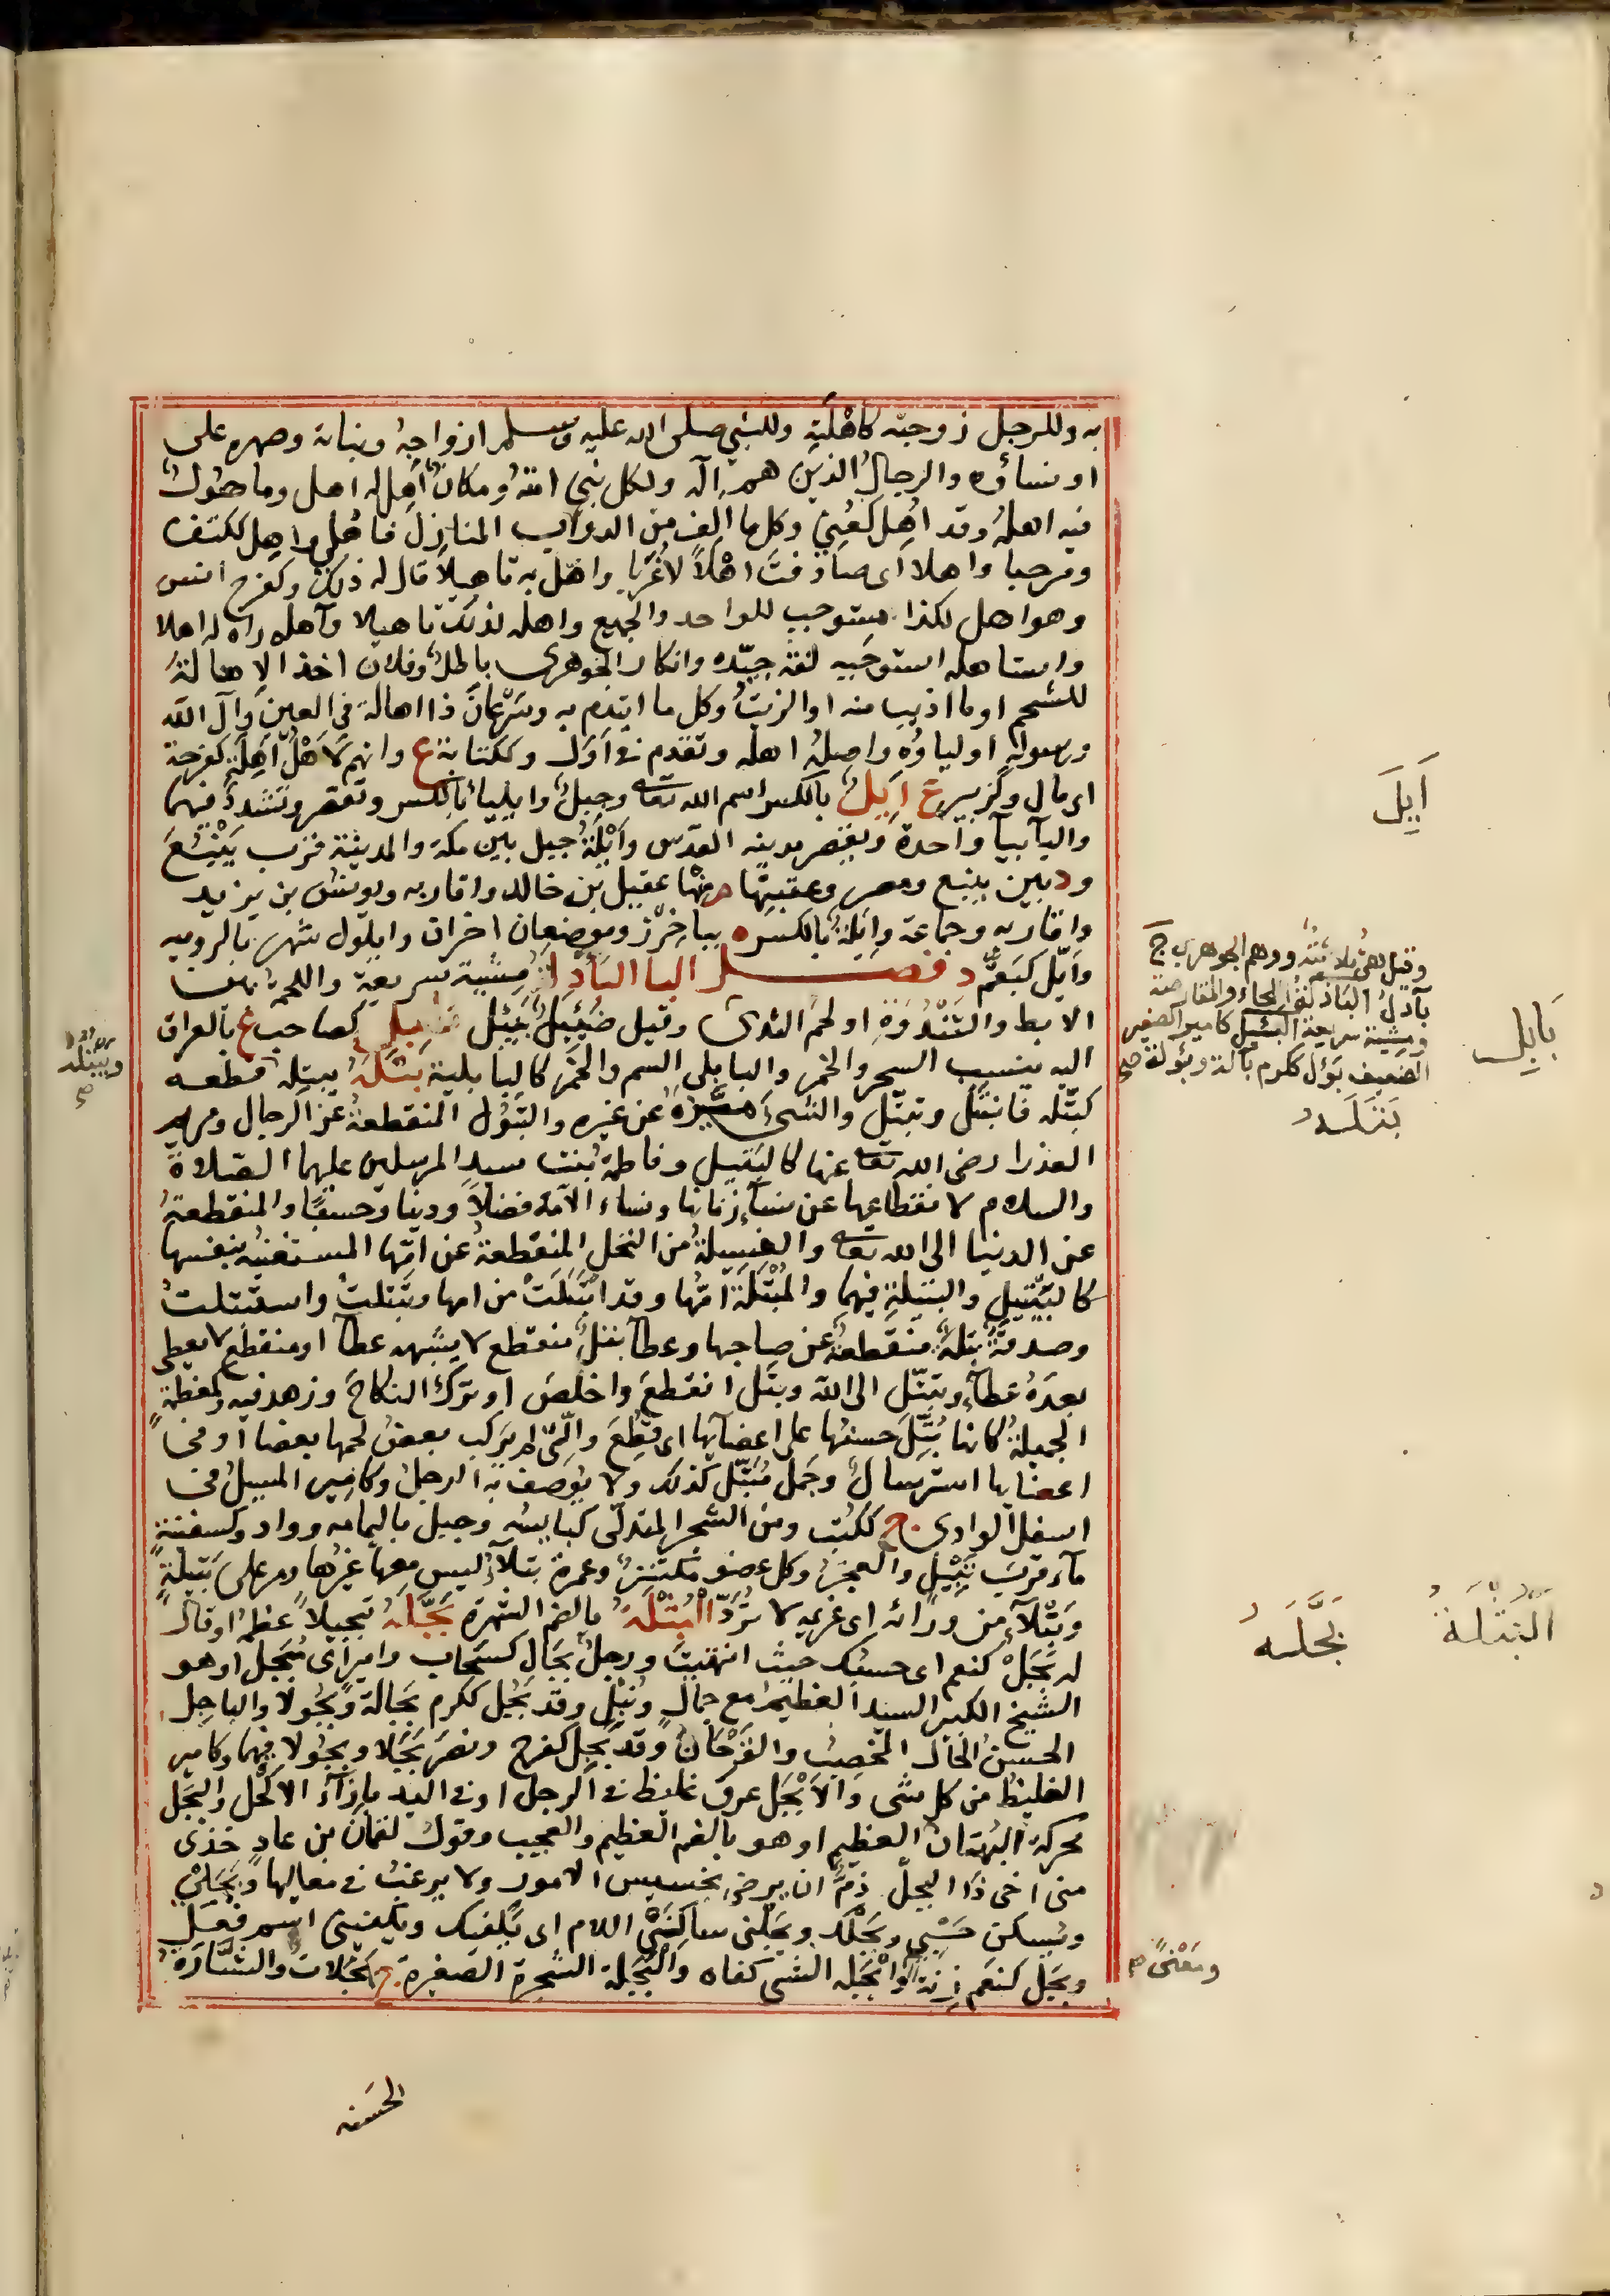 به وللرجل زوجته كاهلته وللنبي صلى الله عليه وسلم ازواجه وبناته وصهره على
او نساؤه والرجال الذين هم آله ولكل نبي امته ومكان آهل له اهل وماهول
فيه اهله وقد اهل كعني وكل ما الف من الدواب المنازل فاهلي واهل ككتف
ومرحبا واهلا اى صادفت اهلا لا غربا واهل به تاهيلا قال له ذلك وكفرح انس
وهو اهل لكذا مستوجب للواحد والجميع واهله لذلك تاهيلا وآهله رآه له اهلا
واستاهله استوجبه لغة جيده وانكار الجوهرى باطل وفلان اخذ الاهالة
للشحم او ما اذيب منه او الزيت وكل ما ايتدم به وسرعان ذا اهالة فى العين وآل الله
ورسوله اولياؤه واصله اهله وتقدم فى اول وككتابة ع وانهم لاهل اهلة كفرحة
اى مال وكزبير ع ايل بالكسر اسم الله تعالى وجبل وايلياء بالكسر وتقصر وتشدد فيهما
والياء بياء واحدة وتقصر مدينه القدس وايلة جبل بين مكة والمدينة قرب ينبع
ود بين ينبع ومصر وعقبتها م منها عقيل بن خالد واقاربه ويونس بن يزيد
واقاربه وجماعة وايلة بالكسره بباخرز وموضعان اخران وايلول شهر بالرومية
وايل كبقم د فصل البا البادل مشية سريعة واللحمة بين
الابط والثندوة او لحم الثدى وقيل ضئيل بئيل بابل كصاحب ع بالعراق
اليه ينسب السحر والخمر والبابلى السم والخمر كالبابلية بتله يبتله قطعه
كبتله فانبتل وتبتل والشئ ميزه عن غيره والبتول المنقطعة عن الرجال ومريم
العذرا رضى الله تعالى عنها كالبتيل وفاطمة بنت سيد المرسلين عليهما الصلاة
والسلام لانقطاعها عن نساء زمانها ونساء الامة فضلا ودينا وحسبا والمنقطعة
عن الدنيا الى الله تعالى والفسيلة من النخل المنقطعة عن امها المستغنية بنفسها
كالبتيل والبتيلة فيهما والمبتلة امها وقد انبتلت من امها وتبتلت واستبتلت
وصدقة بتلة منقطعة عن صاحبها وعطاء بتل منقطع لا يشبهه عطاء او منقطع لا يعطى
بعده عطاء وتبتل الى الله وبتل انقطع واخلص او ترك النكاح وزهد فيه وكمعظمة
الجميلة كانها بتل حسنها على اعضائها اى قطع والتى لم يركب بعض لحمها بعضا او فى
اعضائها استرسال وجمل مبتل كذلك ولا يوصف به الرجل وكامير المسيل فى
اسفل الوادى ج ككتب ومن الشجر المتدلى كبائسه وجبل باليمامه وواد وكسفينة
ماء قرب بتيل والعجز وكل عضو مكتنز وعمرة بتلاء ليس معها غيرها ومر على بتيلة
وبتلاء من ورائه اى عزيمه لا ترد البثلة بالضم الشهرة بجله تبجيلا عظمه او قال
له بجل كنعم اى حسبك حيث انتهيت ورجل بجال كسحاب وامير اى مبجل او هو
الشيخ الكبير السيد العظيم مع جمال ونبل وقد بجل ككرم بجالة وبجولا والباجل
الحسن الحال المخصب والفرحان وقد بجل كفرح ونصر بجلا وبجولا فيهما وكامير
الغليظ من كل شى والابجل عرق غليظ فى الرجل او فى اليد بازاء الاكحل والبجل
محركة البهتان العظيم او هو بالضم العظيم والعجيب وقول لقمان بن عاد خذى
منى اخى ذا البجل ذم اى يرضى بخسيس الامور ولا يرغب فى معاليها وبجلى
ويسكن حسبى وبجلك وبجلنى ساكنتى اللام اى يكفيك ويكفينى اسم فعل
وبجل كنعم زنة وابجله الشى كفاه والبجلة الشجرة الصغيرة ج بجلات والشارة
ايل
وقيل هى بلا تنه ووهم الجوهرى ج
بآدل البئاذل كتقابل الجاء والمقارضة
ومشية سريعة البئيل كامير الصغير
الضعيف بؤل ككرم بآلة وبؤولة صح
بابل
بتله
ويبتله صح
البثلة
بجله
ومعنى صح
الحسنه